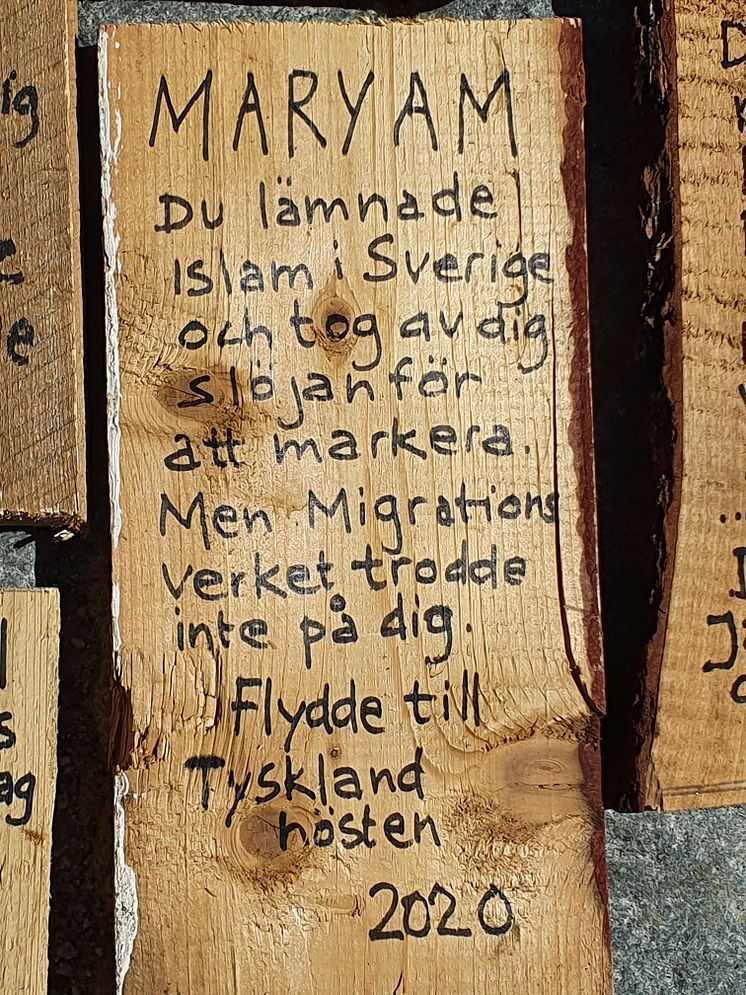 MARYAM
Du lämnade
Islam i Sverige
och tog av dig
slöjan för
att markera.
Men Migrations
verket trodde
inte på dig.
Flydde till
Tyskland
hösten
2020